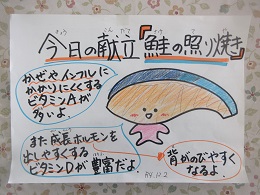 今日の献立「鮭の照り焼き」
かぜやインフルに
かかりにくくする
ビタミンAが
多いよ。
また成長ホルモンを
出しやすくする
ビタミンDが豊富だよ。
背がのびやすく
なるよ。